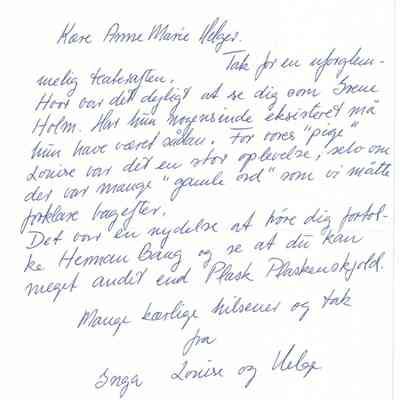 Kære Anne Marie Helger.
Tak for en uforglem-
melig teateraften.
Hvor var det dejligt at se dig som Irene
Holm. Har hun nogensinde eksisteret må
hun have været sådan. For vores "pige"
Louise var det en stor oplevelse, selv om
der var mange "gamle ord" som vi måtte
forklare bagefter.
Det var en nydelse at høre dig fortol-
ke Herman Bang og se at du kan
meget andet end Plask Plaskenskjold.
Mange kærlige hilsener og tak
fra
Inga Louise og Helge